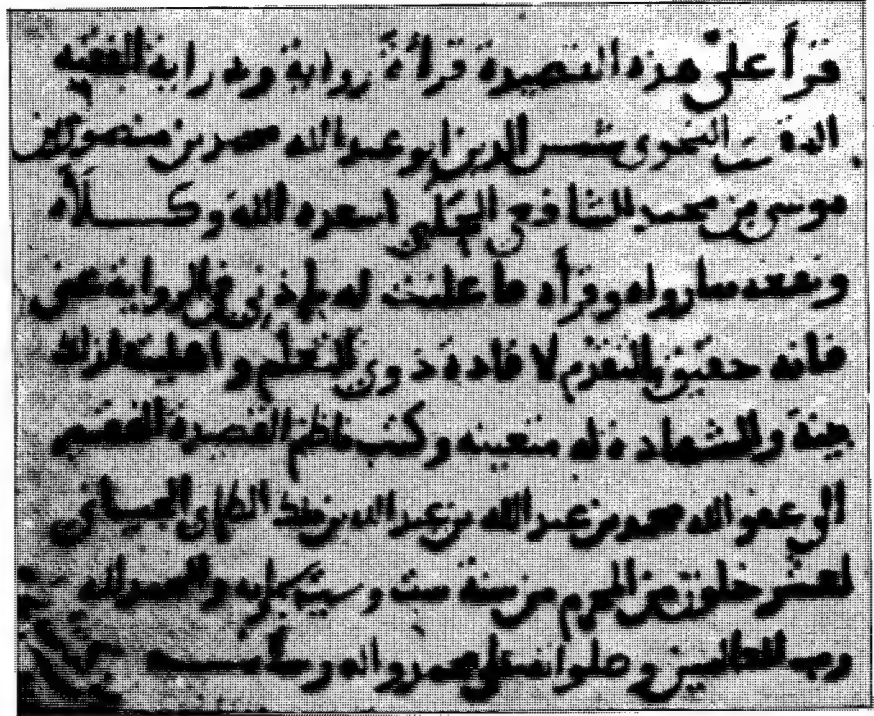 قرأ علىّ هذه القصيدة قراءة رواية ودراية الفقيه
النحوى شمس الدين ابو عبد الله محمد بن منصور بن
موسى بن محمد الشافعى الحلبى اسعده الله وكلأه
ونفعه بما رواه وقرأه ما علنت له باذنى فى الرواية عنى
فانه حقيق بالتقدم لافادة ذوى التعلم واهليته لذلك
بينة والشهادة له متعينه وكتب ناظم القصيدة الفقير
الى عفو الله محمد بن عبد الله بن عبد الله بن ملك الطاى الجيانى
لعشر خلون من المحرم من سنة ست وستين وستمايه والحمد لله
رب العالمين وصلواته على محمد واله وسلامه